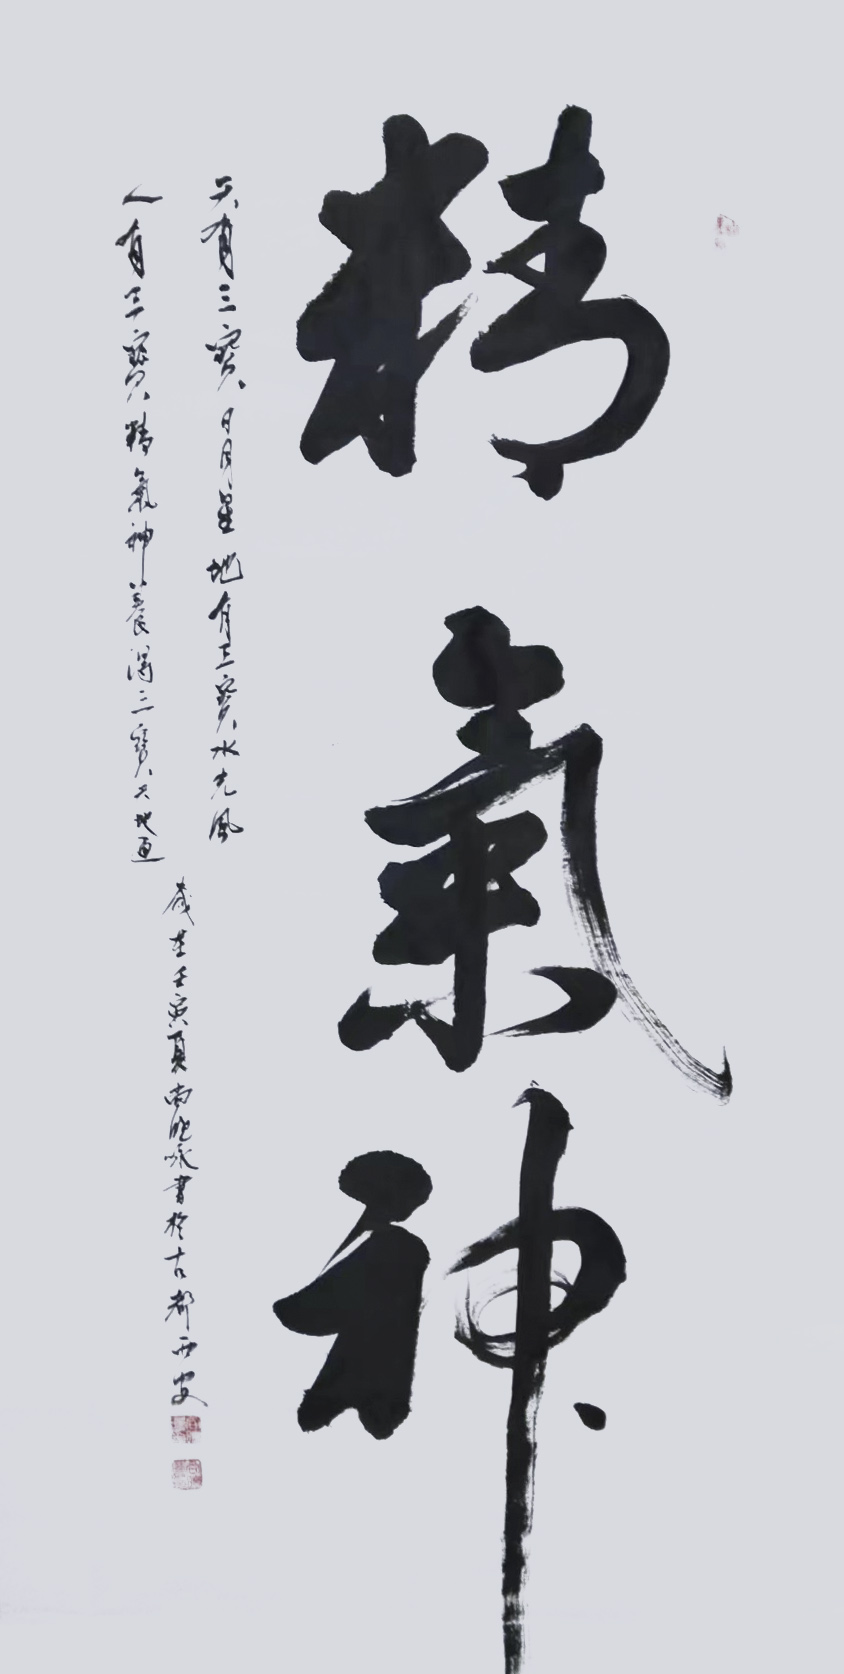 精氣神
天有三寳日月星地有三寳水火風
人有三寳精氣神養得三寳天地通
歲在壬寅夏南 書於古都西安